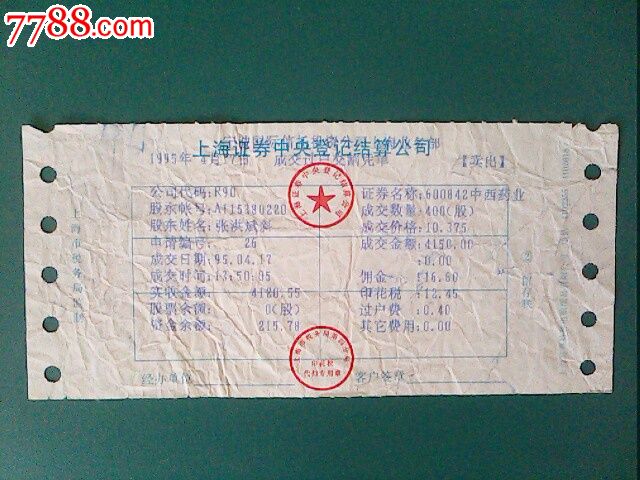 7788.com
上海证券中央登记结算公司
1995年 【卖出】
公司代码:R90 证券名称:600842中西药业
股东帐号:A115380220 成交数量:400(股)
股东姓名:张洪斌 成交价格:10.375
申请编号: 26 成交金额:4150.00
成交日期:95.04.17 :0.00
成交时间:13:50:05 佣金 :16.60
实收金额: 4120.55 印花税 :12.45
股票余额: 0(股) 过户费 :0.40
资金余额: 215.78 其它费用:0.00
经办单位 客户签章
上海市税务局监制
②留存联
上海证券中央登记结算公司
印花税
代扣专用章